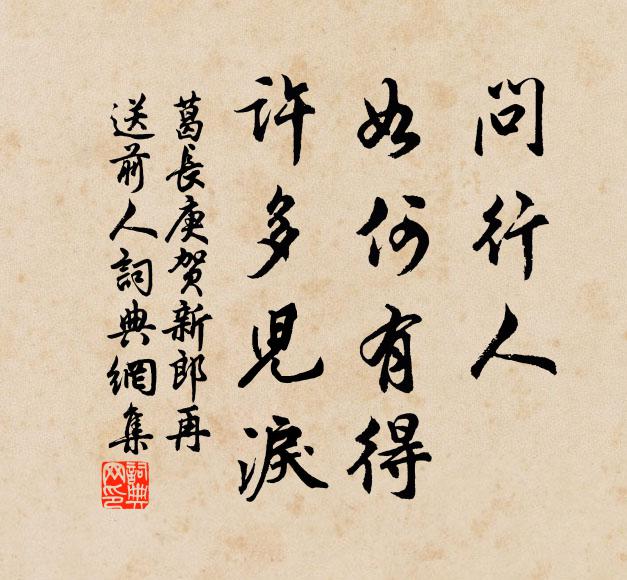 問行人
如何有得
許多兒淚
葛長庚賀新郎再
送前人詞典網集
詞典
网印